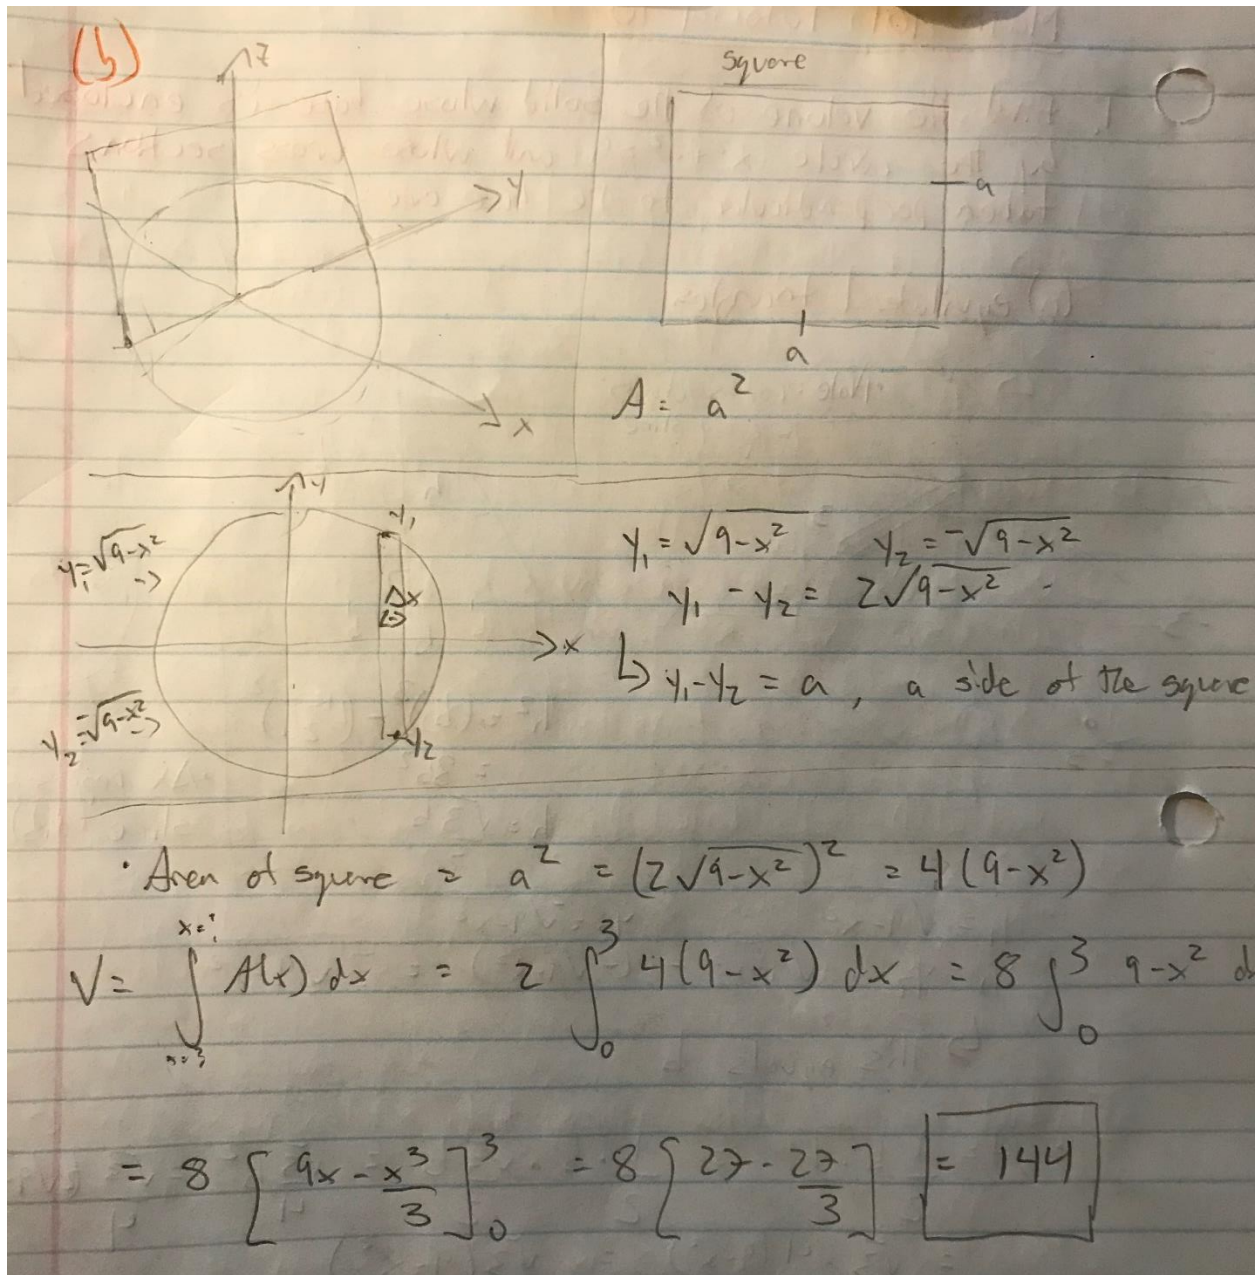 (b)
z
y
x
square
a
a
A = a²
y
y₁
y₁ = √9-x²
Δx
x
y₂ = -√9-x²
y₂
y₁ = √9-x² y₂ = -√9-x²
y₁ - y₂ = 2√9-x²
↳ y₁-y₂ = a, a side of the square
· Area of square = a² = (2√9-x²)² = 4(9-x²)
V = ∫ A(x) dx = 2 ∫₀³ 4(9-x²) dx = 8 ∫₀³ 9-x² d
= 8 [9x - x³/3]₀³ = 8 [27 - 27/3] = 144